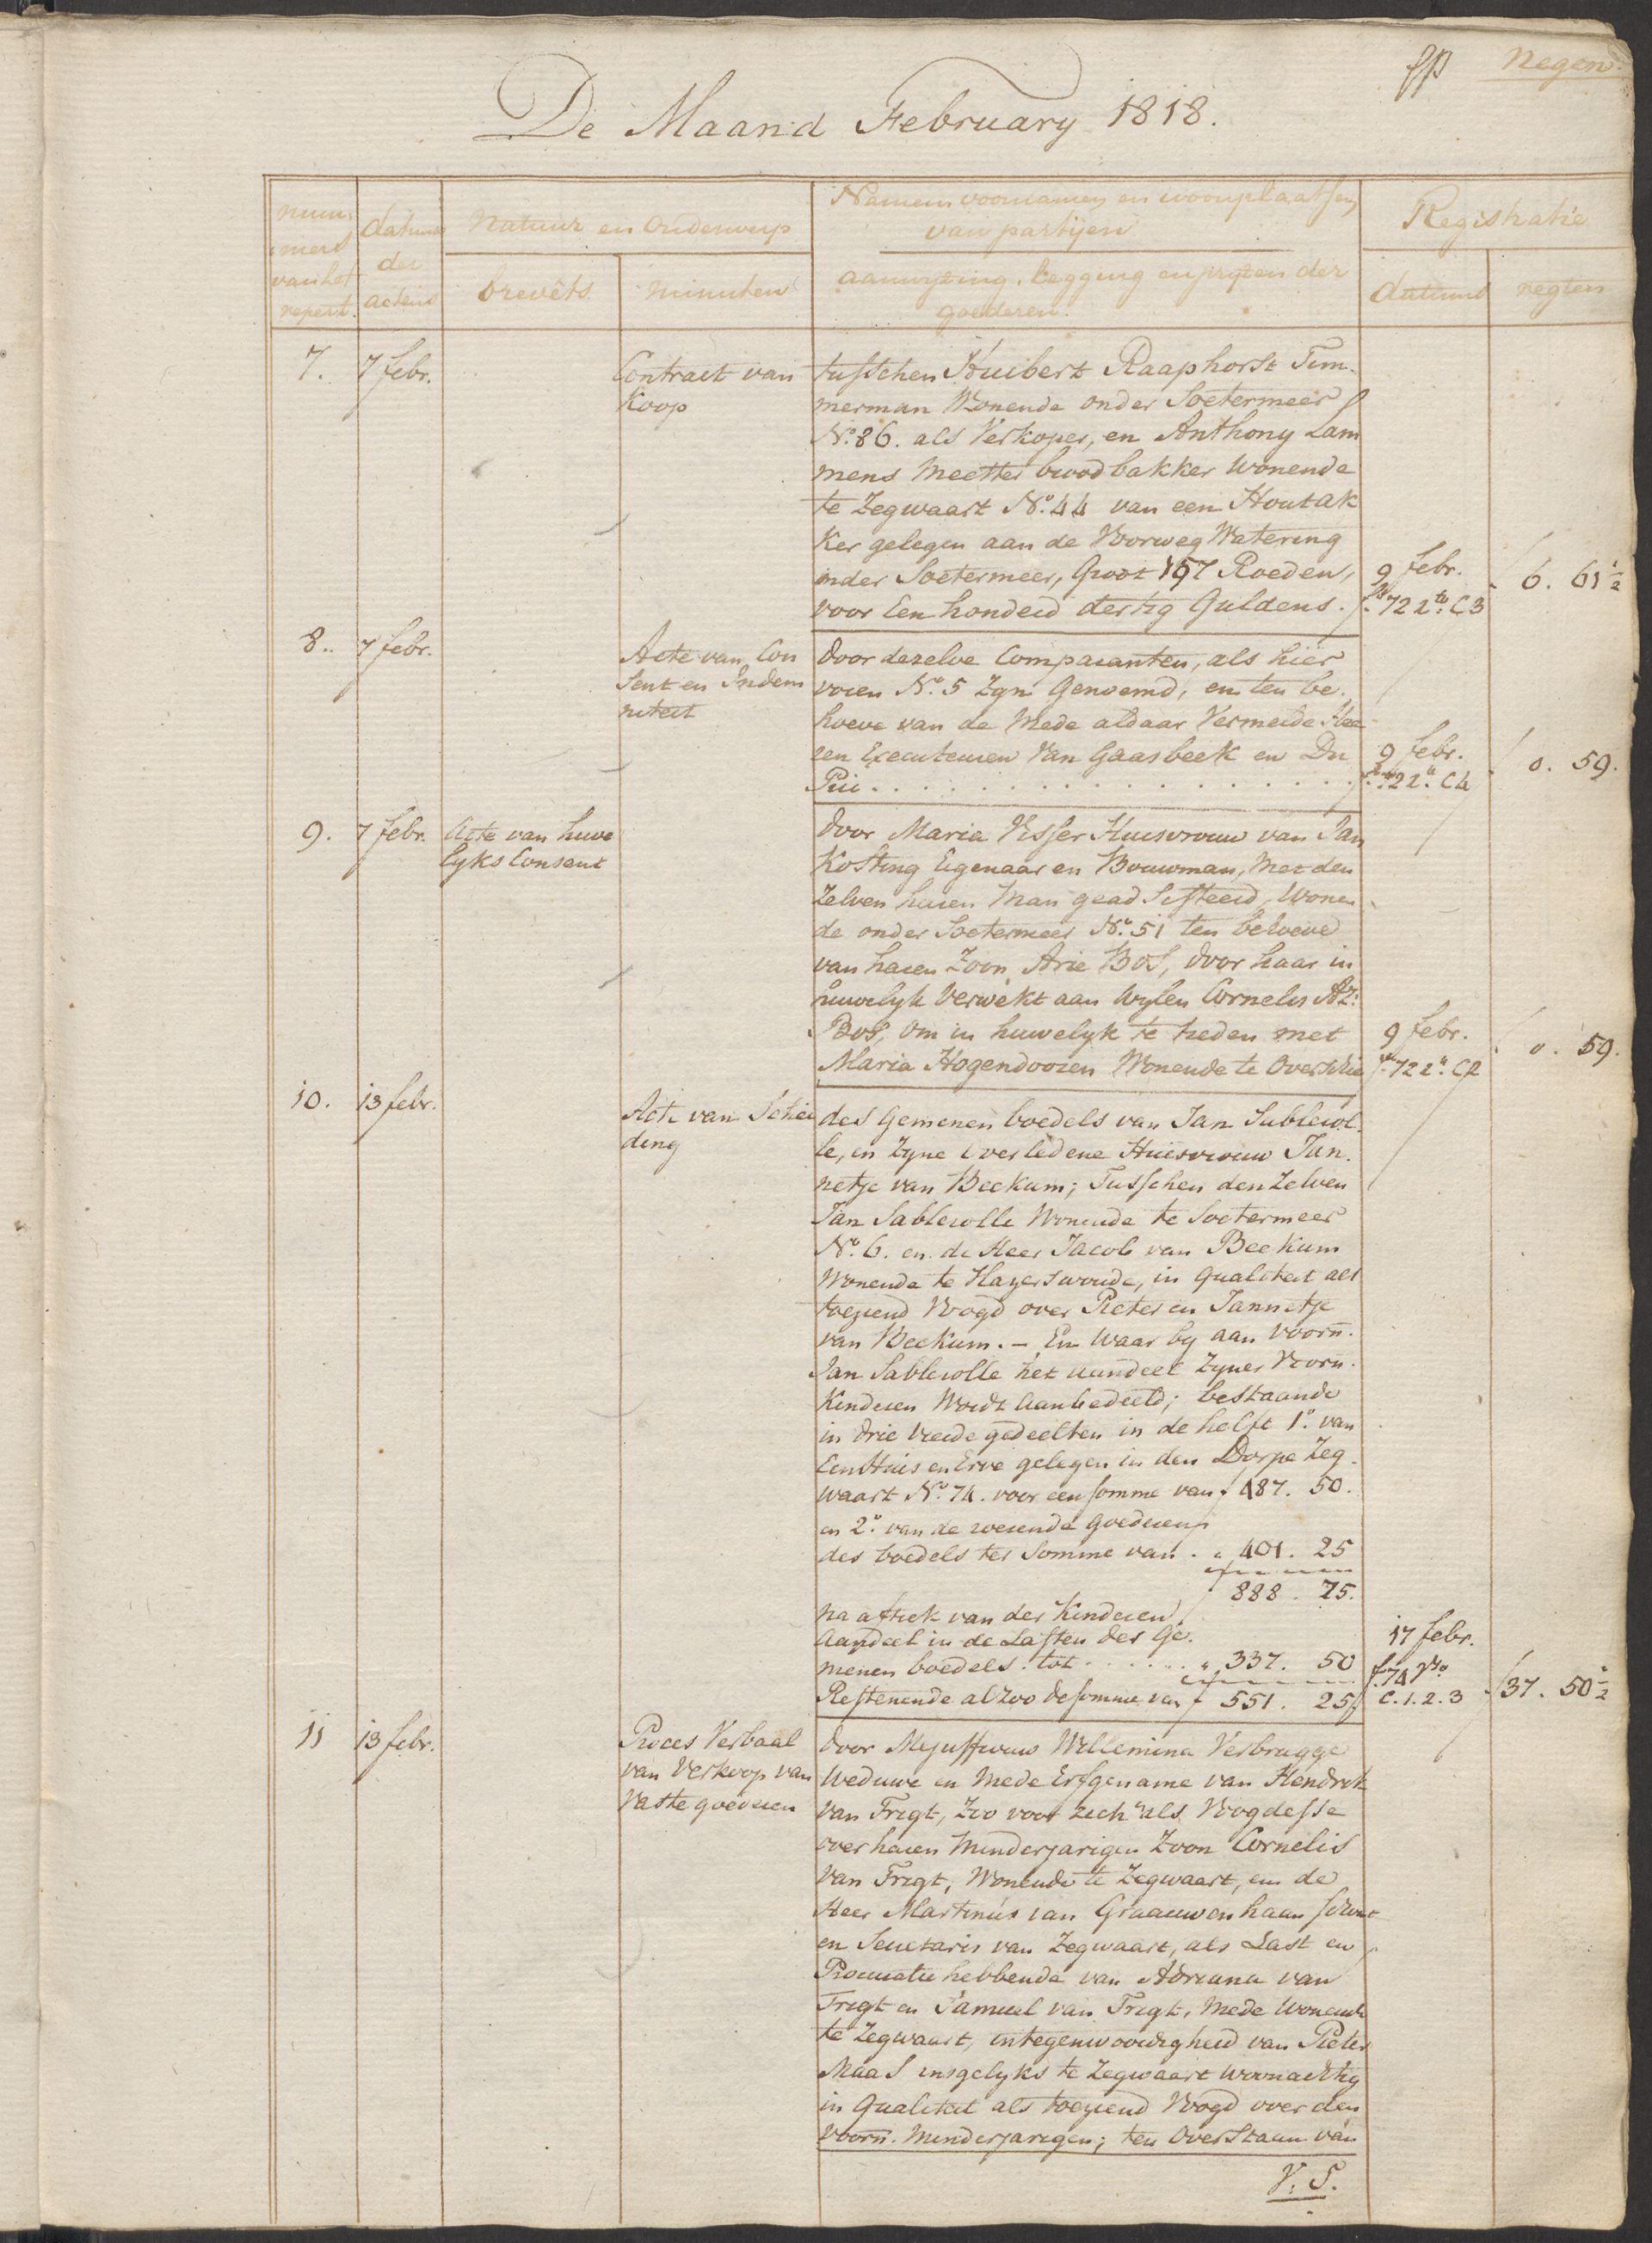 Negen
De Maand February 1818.
num
mers
van het
repert.
datums
der
actens
Natuur en Onderwerp
brevêts
minuten
Namen voornamen en woonplaatsen
van partijen
aanwyzing, legging en pryzen der
goederen.
Registratie
datums
regten
7. 7 febr.
Contract van
Koop
tusschen Huibert Raaphorst Tim-
merman Wonende onder Soetermeer
No. 86. als Verkoper, en Anthony Lam
mens Meester broodbakker Wonende
te Zegwaart No. 44 van een Houtak
ker gelegen aan de Voorweg Watering
onder Soetermeer, Groot 197 Roeden,
voor Een honderd dertig Guldens.
9 febr.
72 C3
6. 61 1/2
8. 7 febr.
Acte van Con
sent en Indem
niteit
door dezelve Comparanten, als hier
voren No. 5 Zyn Genoemd, en ten be-
hoeve van de Mede aldaar Vermelde Hee-
ren Executeuren Van Gaasbeek en Du
Pui . . . . . . . . . . . . . . . . . .
9 febr.
72 C4
0. 59.
9. 7 febr. Acte van huwe
lyks Consent
door Maria Visser Huisvrouw van Jan
Kosting Eigenaar en Bouwman, Met den
Zelven haren Man geadsisteerd, Wonen-
de onder Soetermeer No. 51 ten behoeve
van haren Zoon Arie Bos, door haar in
huwelyk Verwekt aan Wylen Cornelis Az:
Bos, om in huwelyk te treden met
Maria Hogendoorn Wonende te Overschie
9 febr.
72 C2
0. 59.
10. 13 febr.
Acte van Schei
ding
des Gemenen boedels van Jan Sablerol-
le, en Zyne Overledene Huisvrouw Jan-
netje van Beekum; Tusschen denZelven
Jan Sablerolle Wonende te Soetermeer
No. 6. en de Heer Jacob van Beekum
Wonende te Hazerswoude, in Qualiteit als
toeziend Voogd over Pieter en Jannetje
van Beekum. - En Waar by aan Voorn.
Jan Sablerolle het aandeel Zyner Voorn.
Kinderen Wordt aanbedeeld; bestaande
in drie vierde gedeelten in de helft 1o. van
Een Huis en Erve gelegen in den Dorpe Zeg-
waart No. 74. voor een somme van f 487. 50.
en 2o. van de roerende goederen
des boedels ter Somme van . " 401. 25
f 888. 75.
na aftrek van der Kinderen
Aandeel in de Lasten des Ge-
menen boedels. tot . . . . . . " 337. 50
Resterende alzoo de somme van f 551. 25
17 febr.
f. 74 Vo.
C. 1. 2. 3
37. 50 1/2
11 13 febr.
Proces Verbaal
van Verkoop van
Vaste goederen
door Mejuffrouw Willemina Verbrugge
Weduwe en Mede Erfgename van Hendrik
van Trigt, Zoo voor zich als Voogdesse
over haren Minderjarigen Zoon Cornelis
van Trigt, Wonende te Zegwaart, en de
Heer Martinus van Graauwenhaan Schout
en Secretaris van Zegwaart, als Last en
Procuratie hebbende van Adriana van
Trigt en Samuel van Trigt, Mede Wonende
te Zegwaart, in tegenwoordigheid van Pieter
Maas insgelyks te Zegwaart Woonachtig
in Qualiteit als toeziend Voogd over den
Voorn. Minderjarigen; ten Overstaan van
V. S.